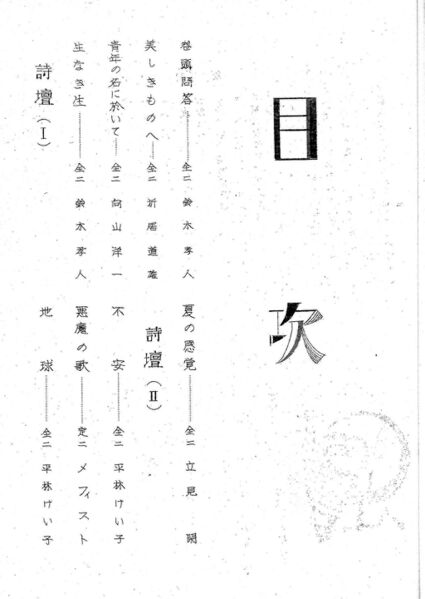 目次
巻頭問答…………全二 鈴木孝人
美しきものへ…………全二 新居道雄
青年の名に於いて…………全二 向山洋一
生なき生…………全二 鈴木孝人
詩壇(Ⅰ)
夏の感覚…………全二 立見
詩壇(Ⅱ)
不安…………全二 平林けい子
悪魔の歌…………定二 メフィスト
地球…………全二 平林けい子